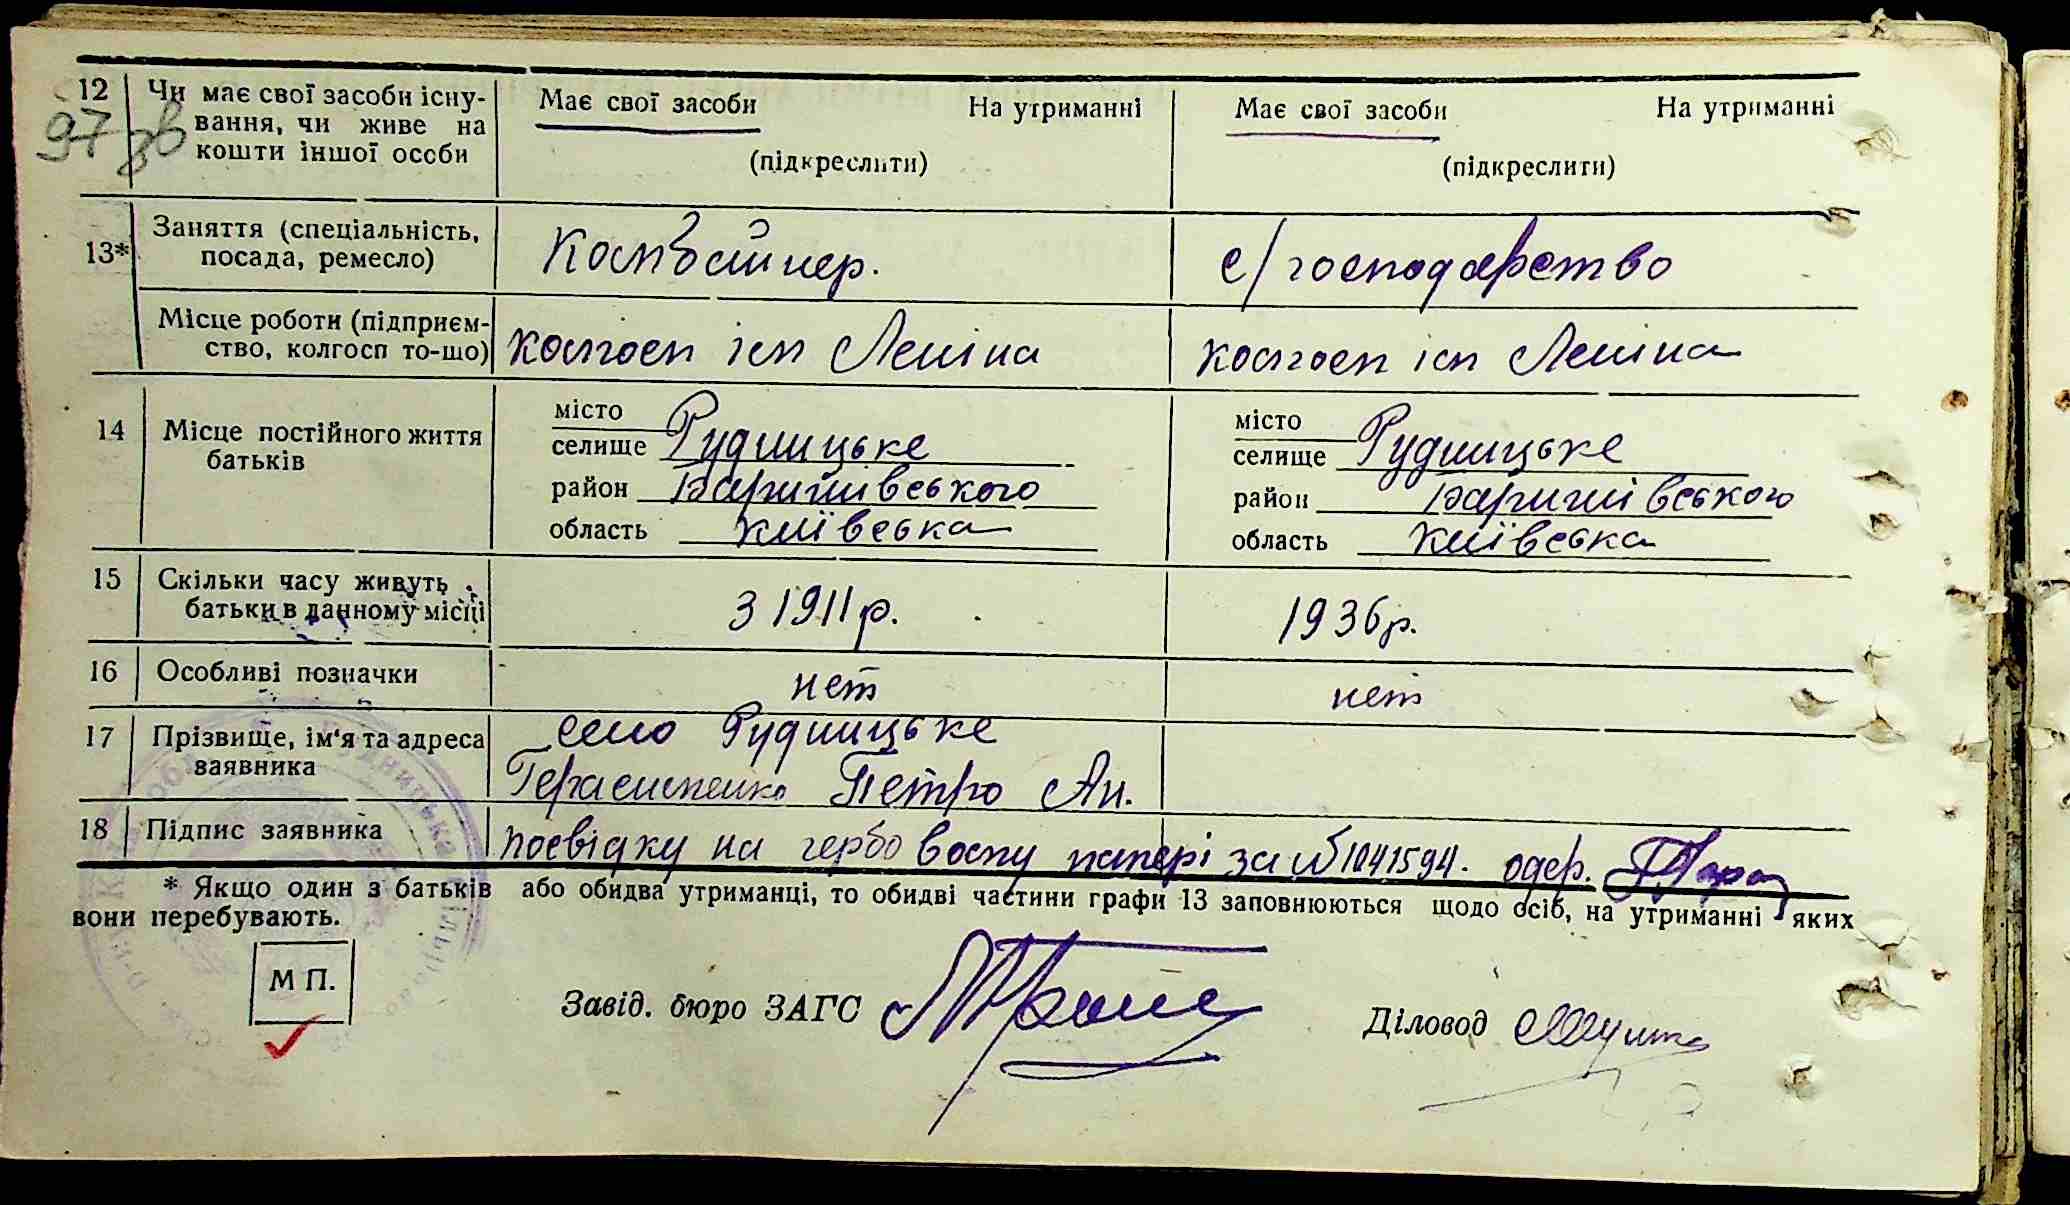 12 Чи має свої засоби існу-
вання, чи живе на
кошти іншої особи
Має свої засоби На утриманні
(підкреслити)
Має свої засоби На утриманні
(підкреслити)
97 зв
13* Заняття (спеціальність,
посада, ремесло)
Комбайнер.
с/господарство
Місце роботи (підприєм-
ство, колгосп то-що)
колгосп ім Леніна
колгосп ім Леніна
14 Місце постійного життя
батьків
місто
селище Рудницьке
район Баришівського
область київська
місто
селище Рудницьке
район Баришівського
область київська
15 Скільки часу живуть
батьки в данному місці
З 1911 р.
1936 р.
16 Особливі позначки
нет
нет
17 Прізвище, ім'я та адреса
заявника
село Рудницьке
Герасименко Петро Ан.
18 Підпис заявника
посвідку на гербовому папері за №1041594. одер.
* Якщо один з батьків або обидва утриманці, то обидві частини графи 13 заповнюються щодо осіб, на утриманні яких
вони перебувають.
М П.
Завід. бюро ЗАГС
Діловод